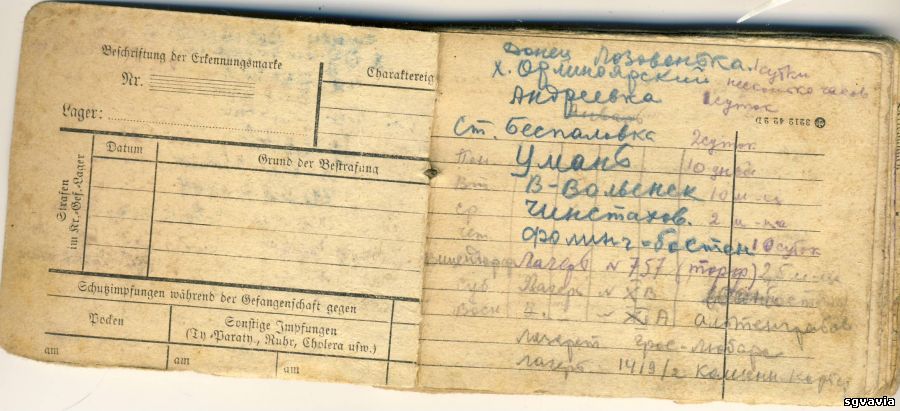 Beschriftung der Erkennungsmarke
Nr.
Lager:
Charaktereig
Strafen
im Kr.-Gef.-Lager
Datum
Grund der Bestrafung
Schutzimpfungen während der Gefangenschaft gegen
Pocken
Sonstige Impfungen
(Ty.-Paraty., Ruhr, Cholera usw.)
am
am
am
Донец Лозовенька 1 сутки
х. Орлиноярский несколько часов
Андреевка суток
Январь
3219 42 9D
Ст. Беспаловка 2 суток
Пон. Умань 10 дней
Вт. В-Волынск 10 м-ц
ср Чинстахов. 2 м-ца
чет Фолинг-бостен 10 суток
Лагерь № 757 (торф) 2,5 м-ца
суб Лагерь № XB
Воск. — XI A алтенграбов
лазерет грос-Любарс
лагерь 14/9/2
sgvavia